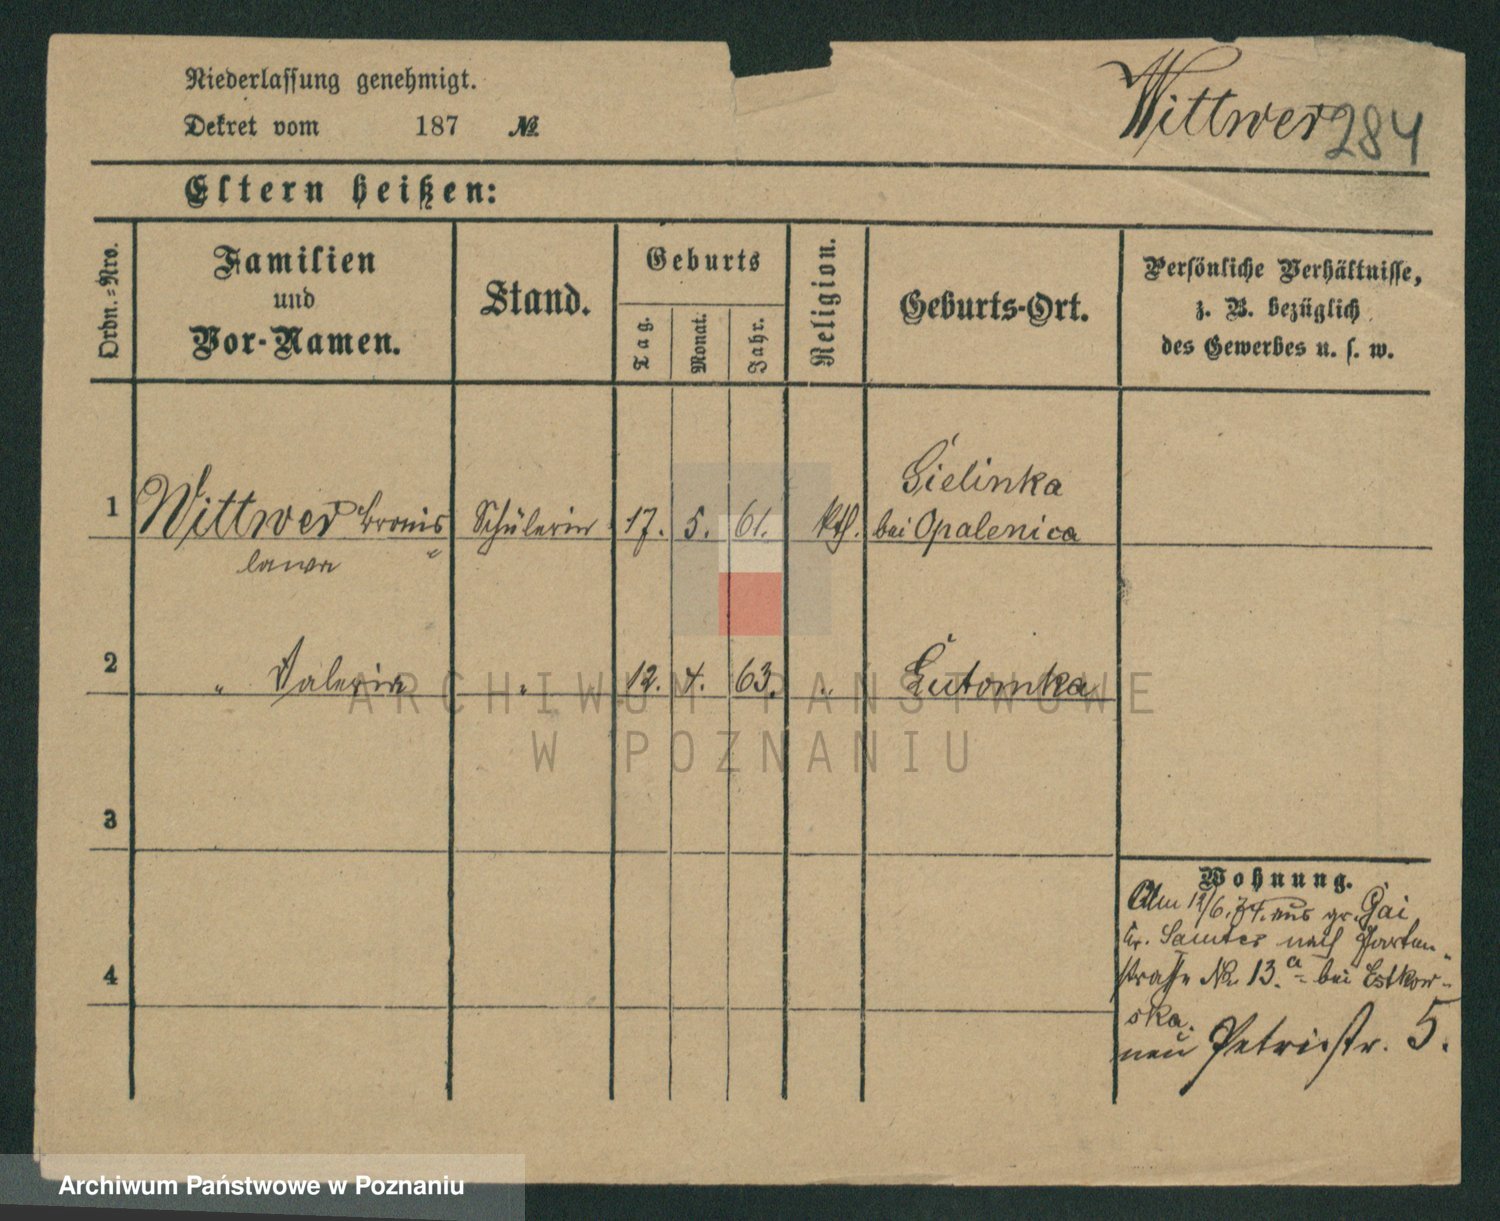 Niederlassung genehmigt.
Dekret vom 187 №
Wittwer 284
Eltern heißen:
Ordn.-Nro.
Familien
und
Vor-Namen.
Stand.
Geburts
Tag.
Monat.
Jahr.
Religion.
Geburts-Ort.
Persönliche Verhältnisse,
z. B. bezüglich
des Gewerbes u. s. w.
Gielinka
1 Wittwer Bronis Schülerin 17. 5. 61. kth. bei Opalenica
lawa
2 " Valeria " 12. 4. 63. " Lutomka
ARCHIWUM PAŃSTWOWE
W POZNANIU
3
4
Wohnung.
Am 12/6. 74. aus gr. Gai
Kr. Samter nach Garten-
straße No 13.a bei Estkow-
ska.
neu Petristr. 5.
Archiwum Państwowe w Poznaniu